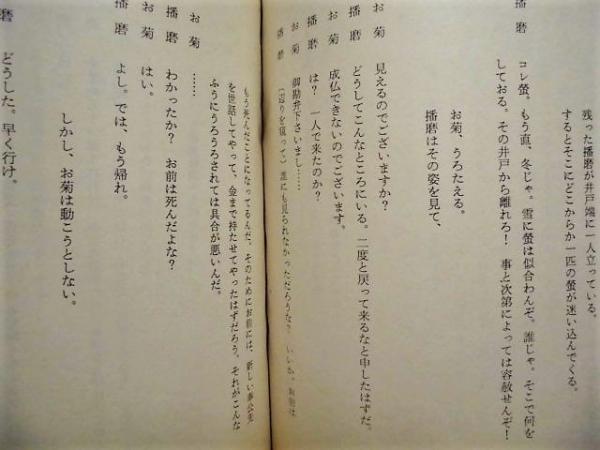 残った播磨が井戸端に一人立っている。
するとそこにどこからか一匹の螢が迷い込んでくる。
播磨 コレ螢。もう直、冬じゃ。雪に螢は似合わんぞ。誰じゃ。そこで何を
しておる。その井戸から離れろ! 事と次第によっては容赦せんぞ!
お菊、うろたえる。
播磨はその姿を見て、
お菊 見えるのでございますか?
播磨 どうしてこんなところにいる。二度と戻って来るなと申したはずだ。
お菊 成仏できないのでございます。
播磨 は? 一人で来たのか?
お菊 御勘弁下さいまし……
播磨 (辺りを窺って)誰にも見られなかっただろうな? いいか、お前は
もう死んだことになってるんだ、そのためにお前には、新しい奉公先
を世話してやって、金まで持たせてやったはずだろう。それがこんな
ふうにうろうろされては具合が悪いんだ。
お菊 ……
播磨 わかったか? お前は死んだよな?
お菊 はい。
播磨 よし。では、もう帰れ。
しかし、お菊は動こうとしない。
磨 どうした。早く行け。